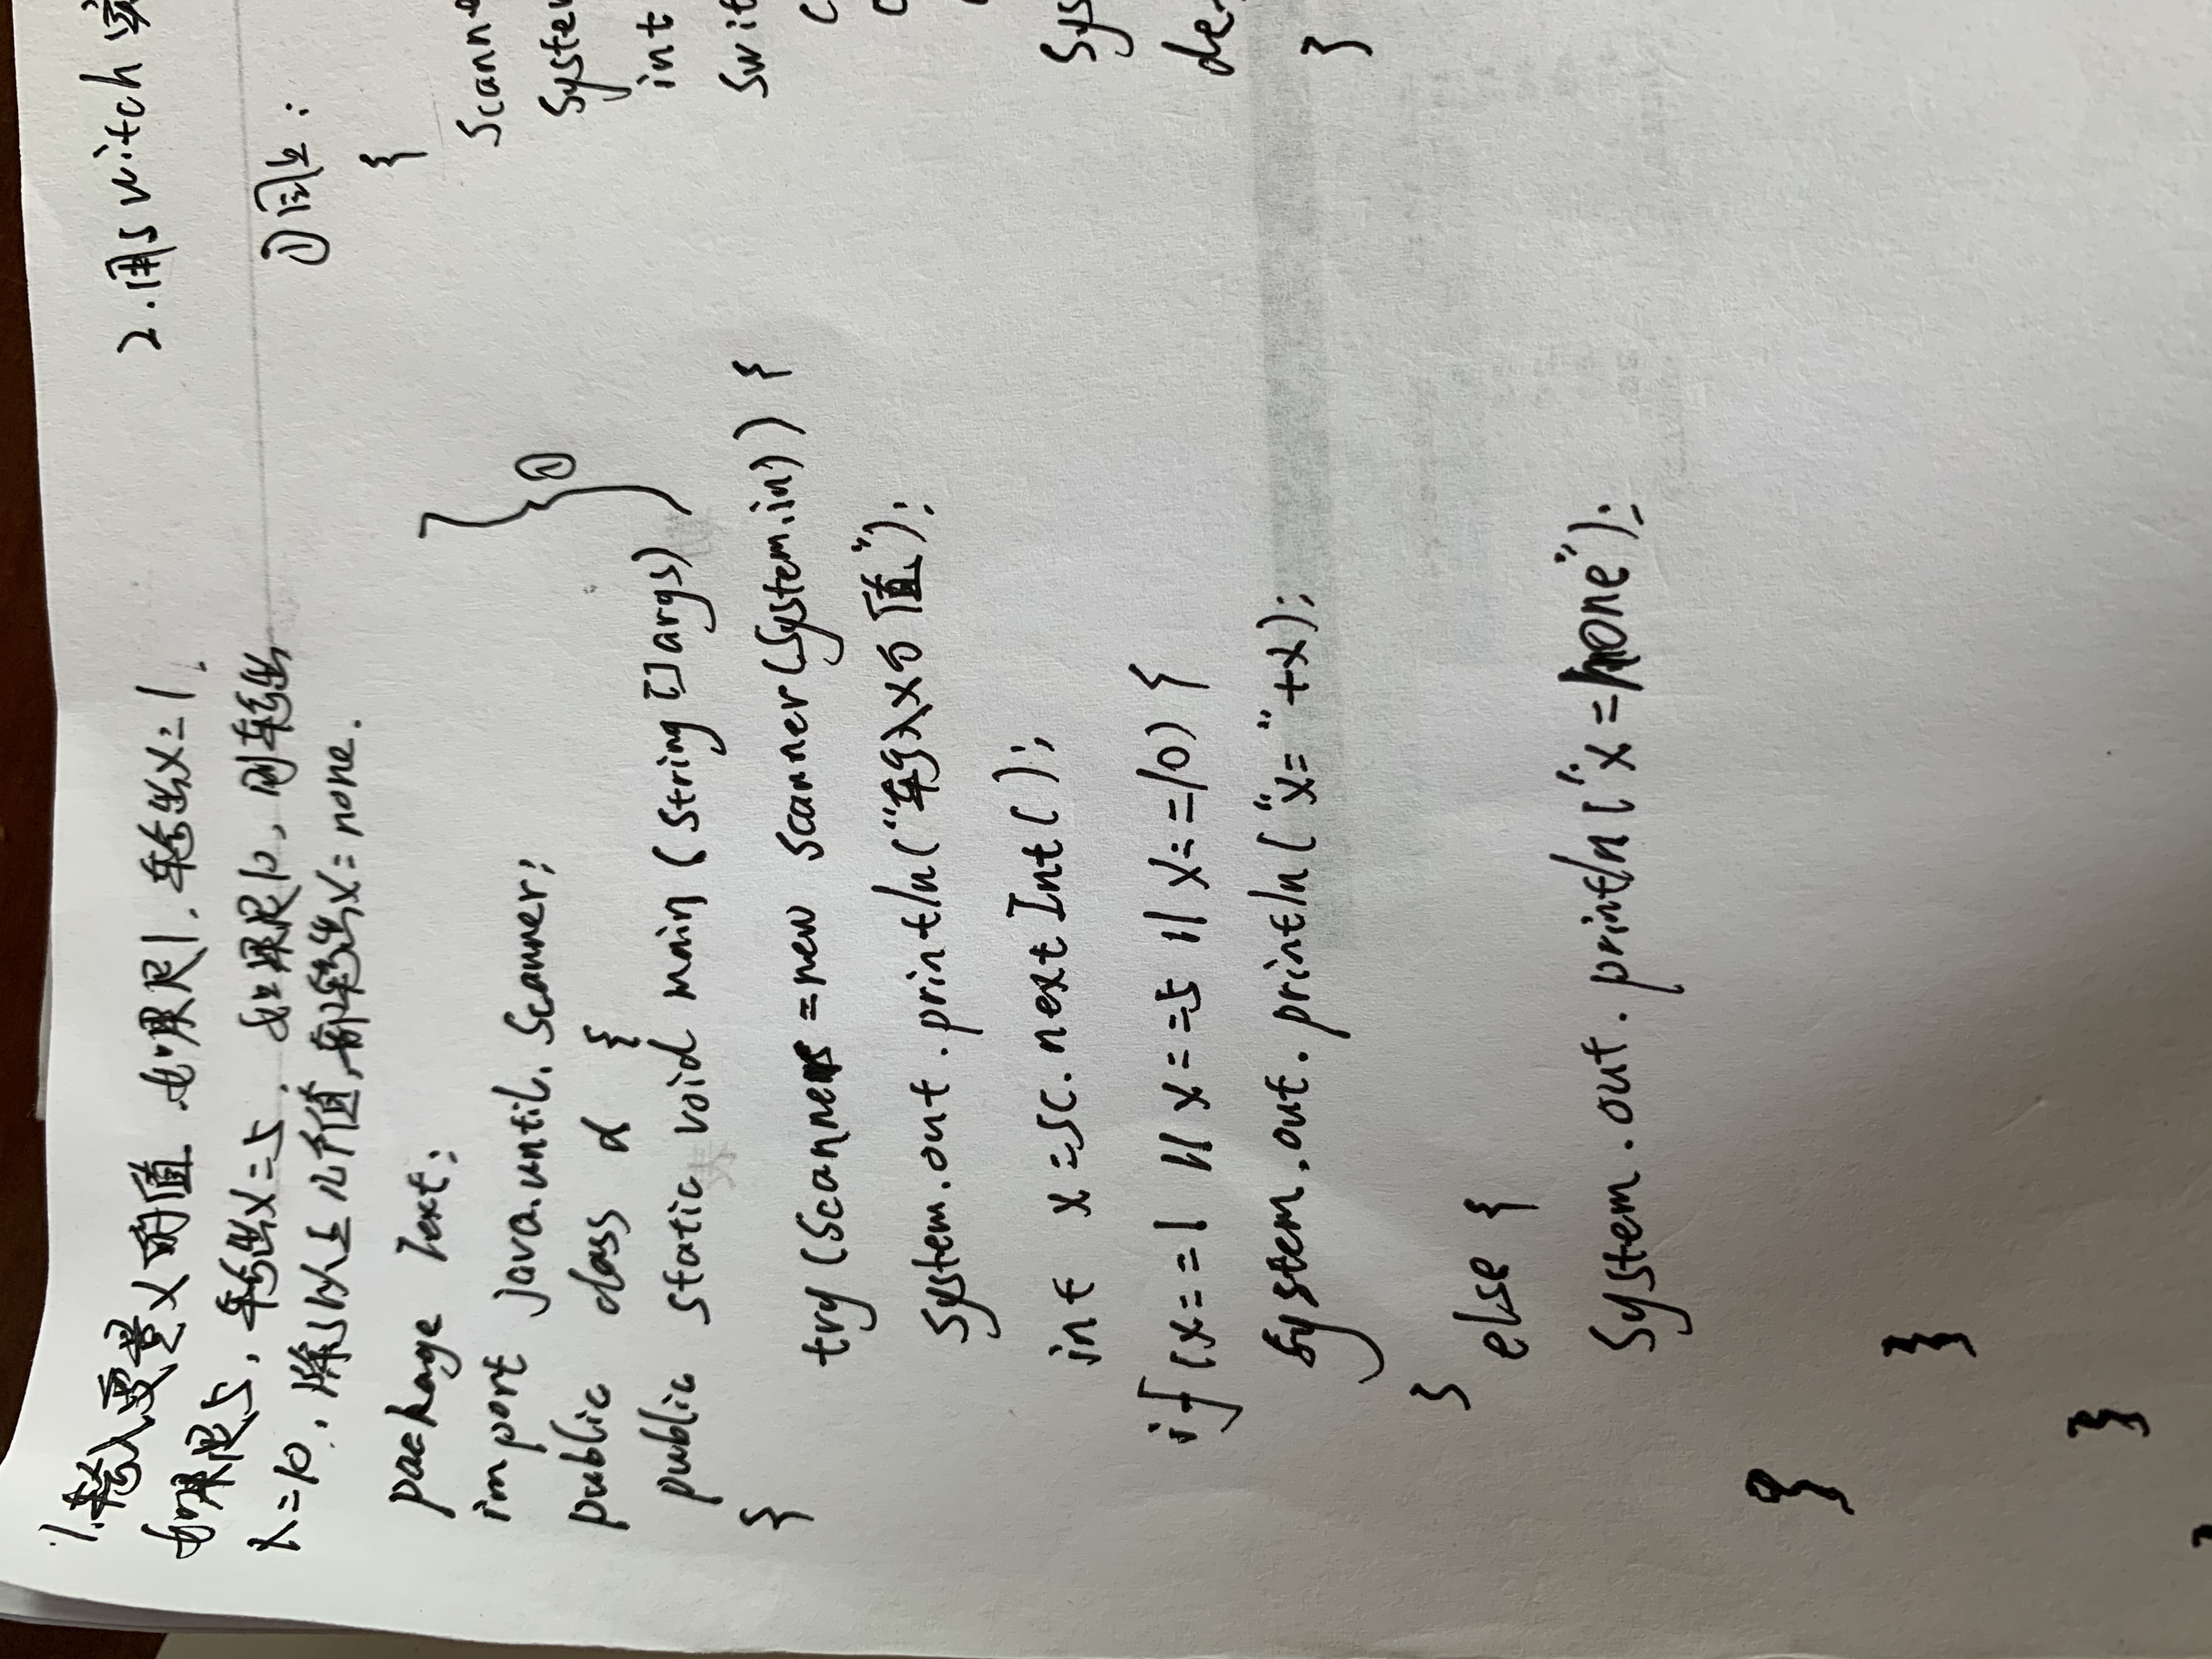 1.输入变量x的值.如果是1,输出x=1,
如果是5,输出x=5,如果是10,则输出
x=10,除了以上几个值,都输出x=none.
package Text;
import java.until.Scanner;
public class d {
public static void main (String []args)
{
} ①
try(Scanner =new Scanner(System.in)) {
System.out.println("输入x的值");
int x=sc.nextInt();
if(x==1 || x==5 || x==10) {
System.out.println("x="+x);
}
else {
System.out.println("x=none");
}
}
}
2.用switch实
①同上:
{
Scanne
System
int
Swit
Sys
def
}